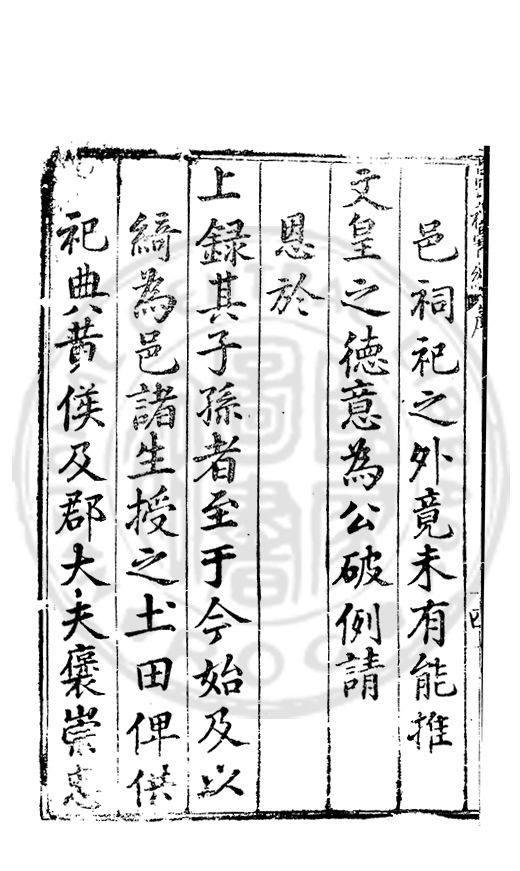 邑祠祀之外竟未有能推
文皇之徳意為公破例請
恩於
上録其子孫者至于今始及以
綺為邑諸生授之土田俾供
祀典黄侯及郡大夫褒崇忠